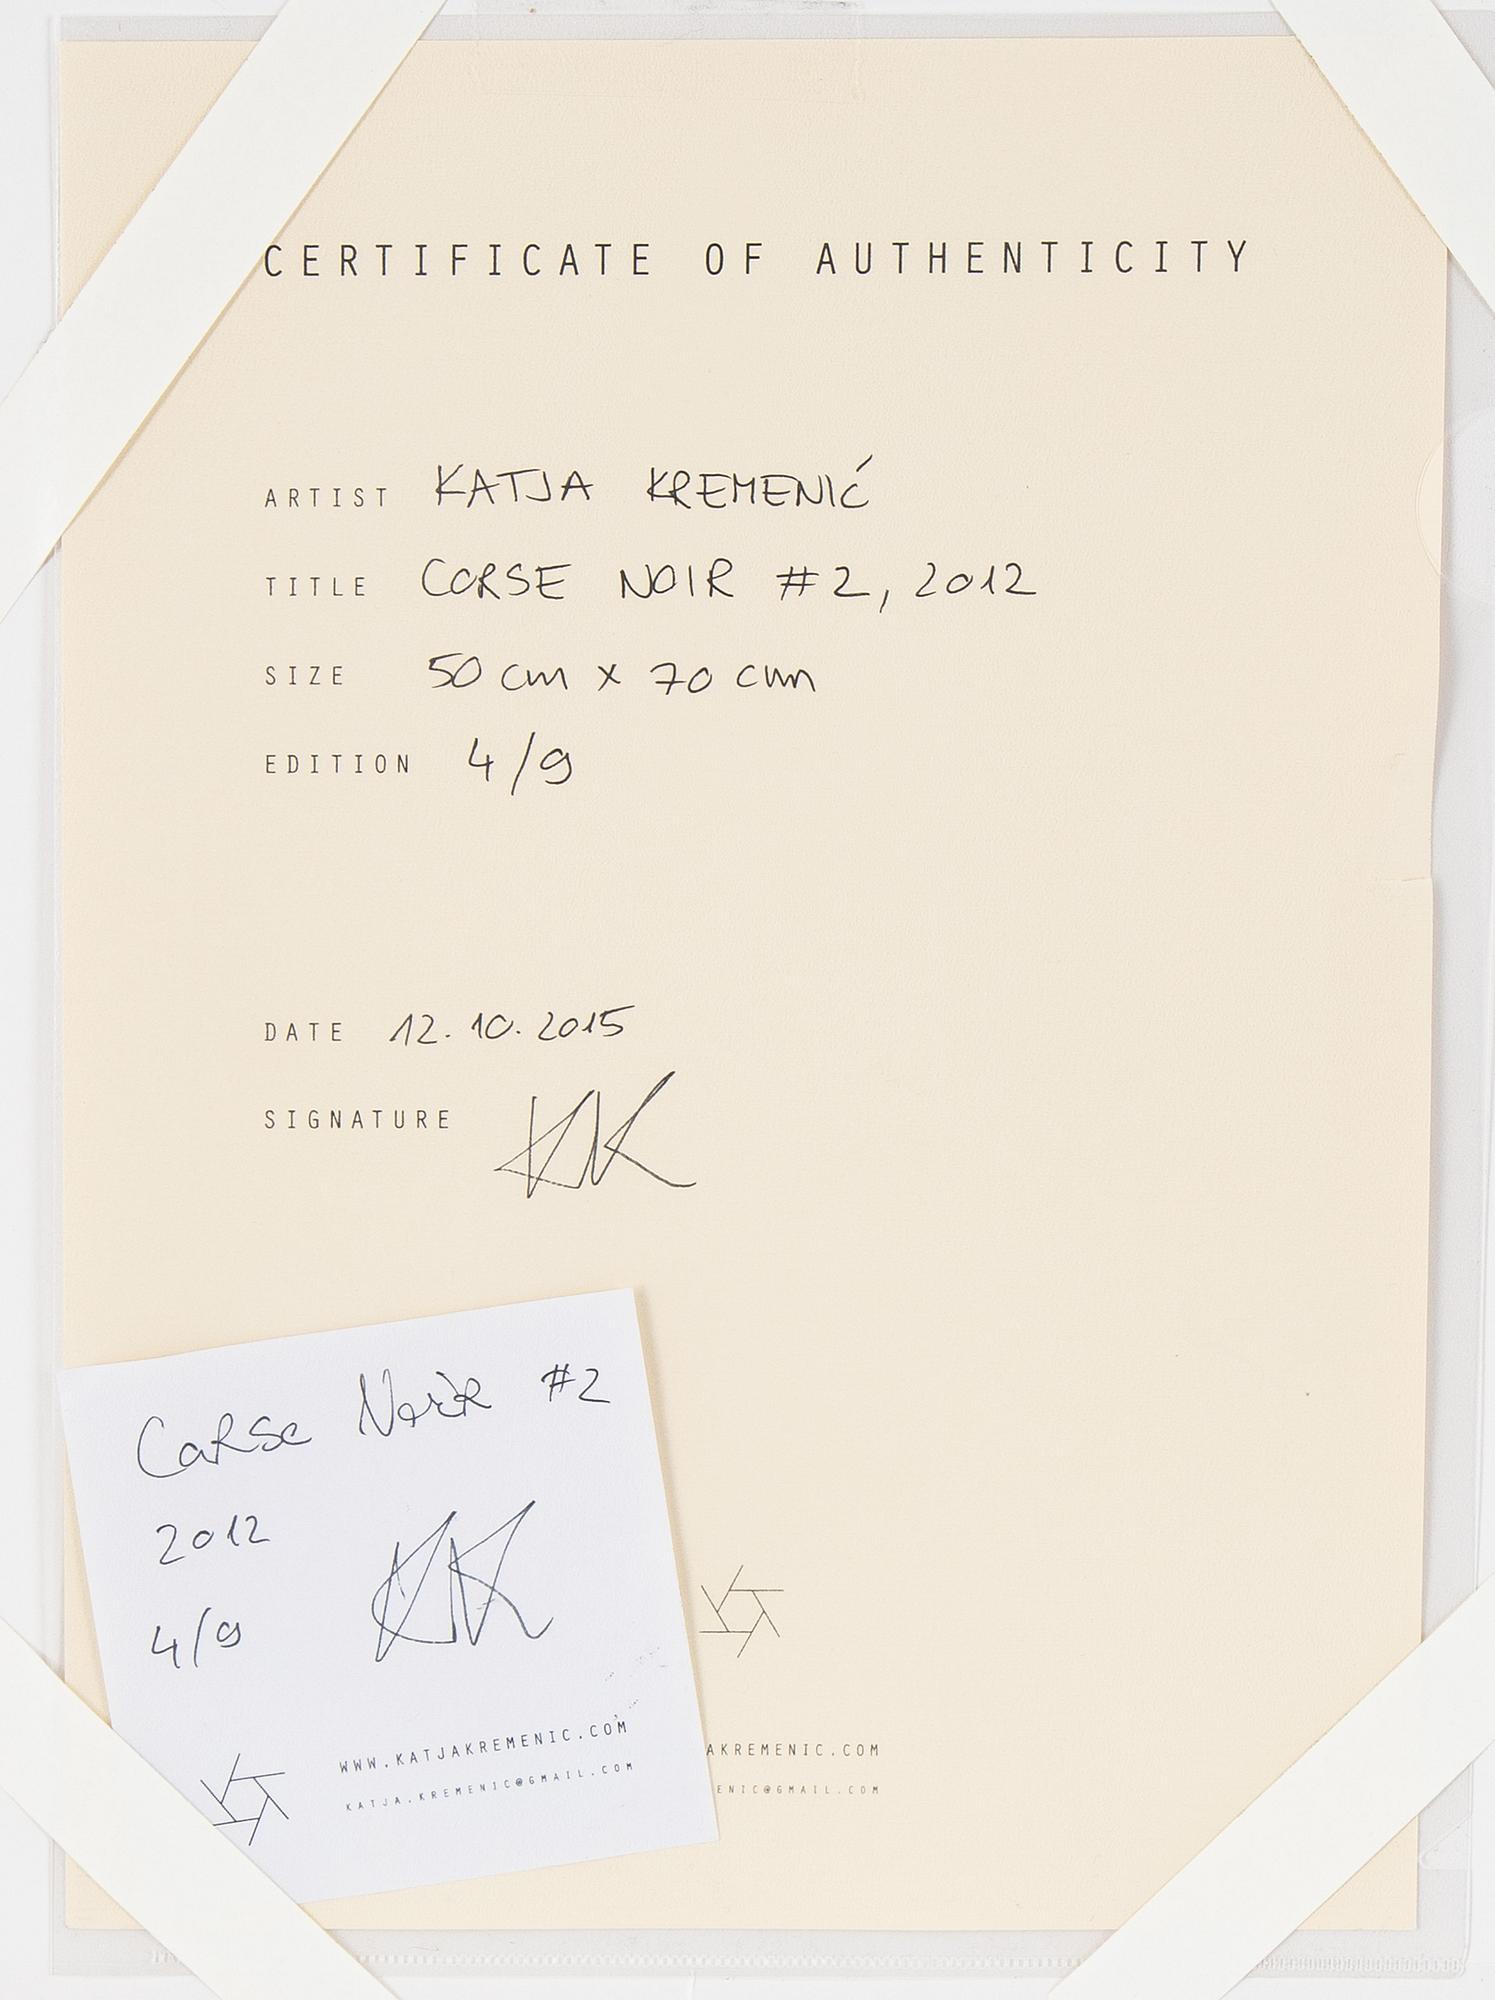 CERTIFICATE OF AUTHENTICITY
ARTIST KATJA KREMENIĆ
TITLE CORSE NOIR #2, 2012
SIZE 50 cm x 70 cm
EDITION 4/9
DATE 12.10.2015
SIGNATURE KK
Corse Noir #2
2012
KK
4/9
WWW.KATJAKREMENIC.COM
KATJA.KREMENIC@GMAIL.COM
AKREMENIC.COM
ENIC@GMAIL.COM